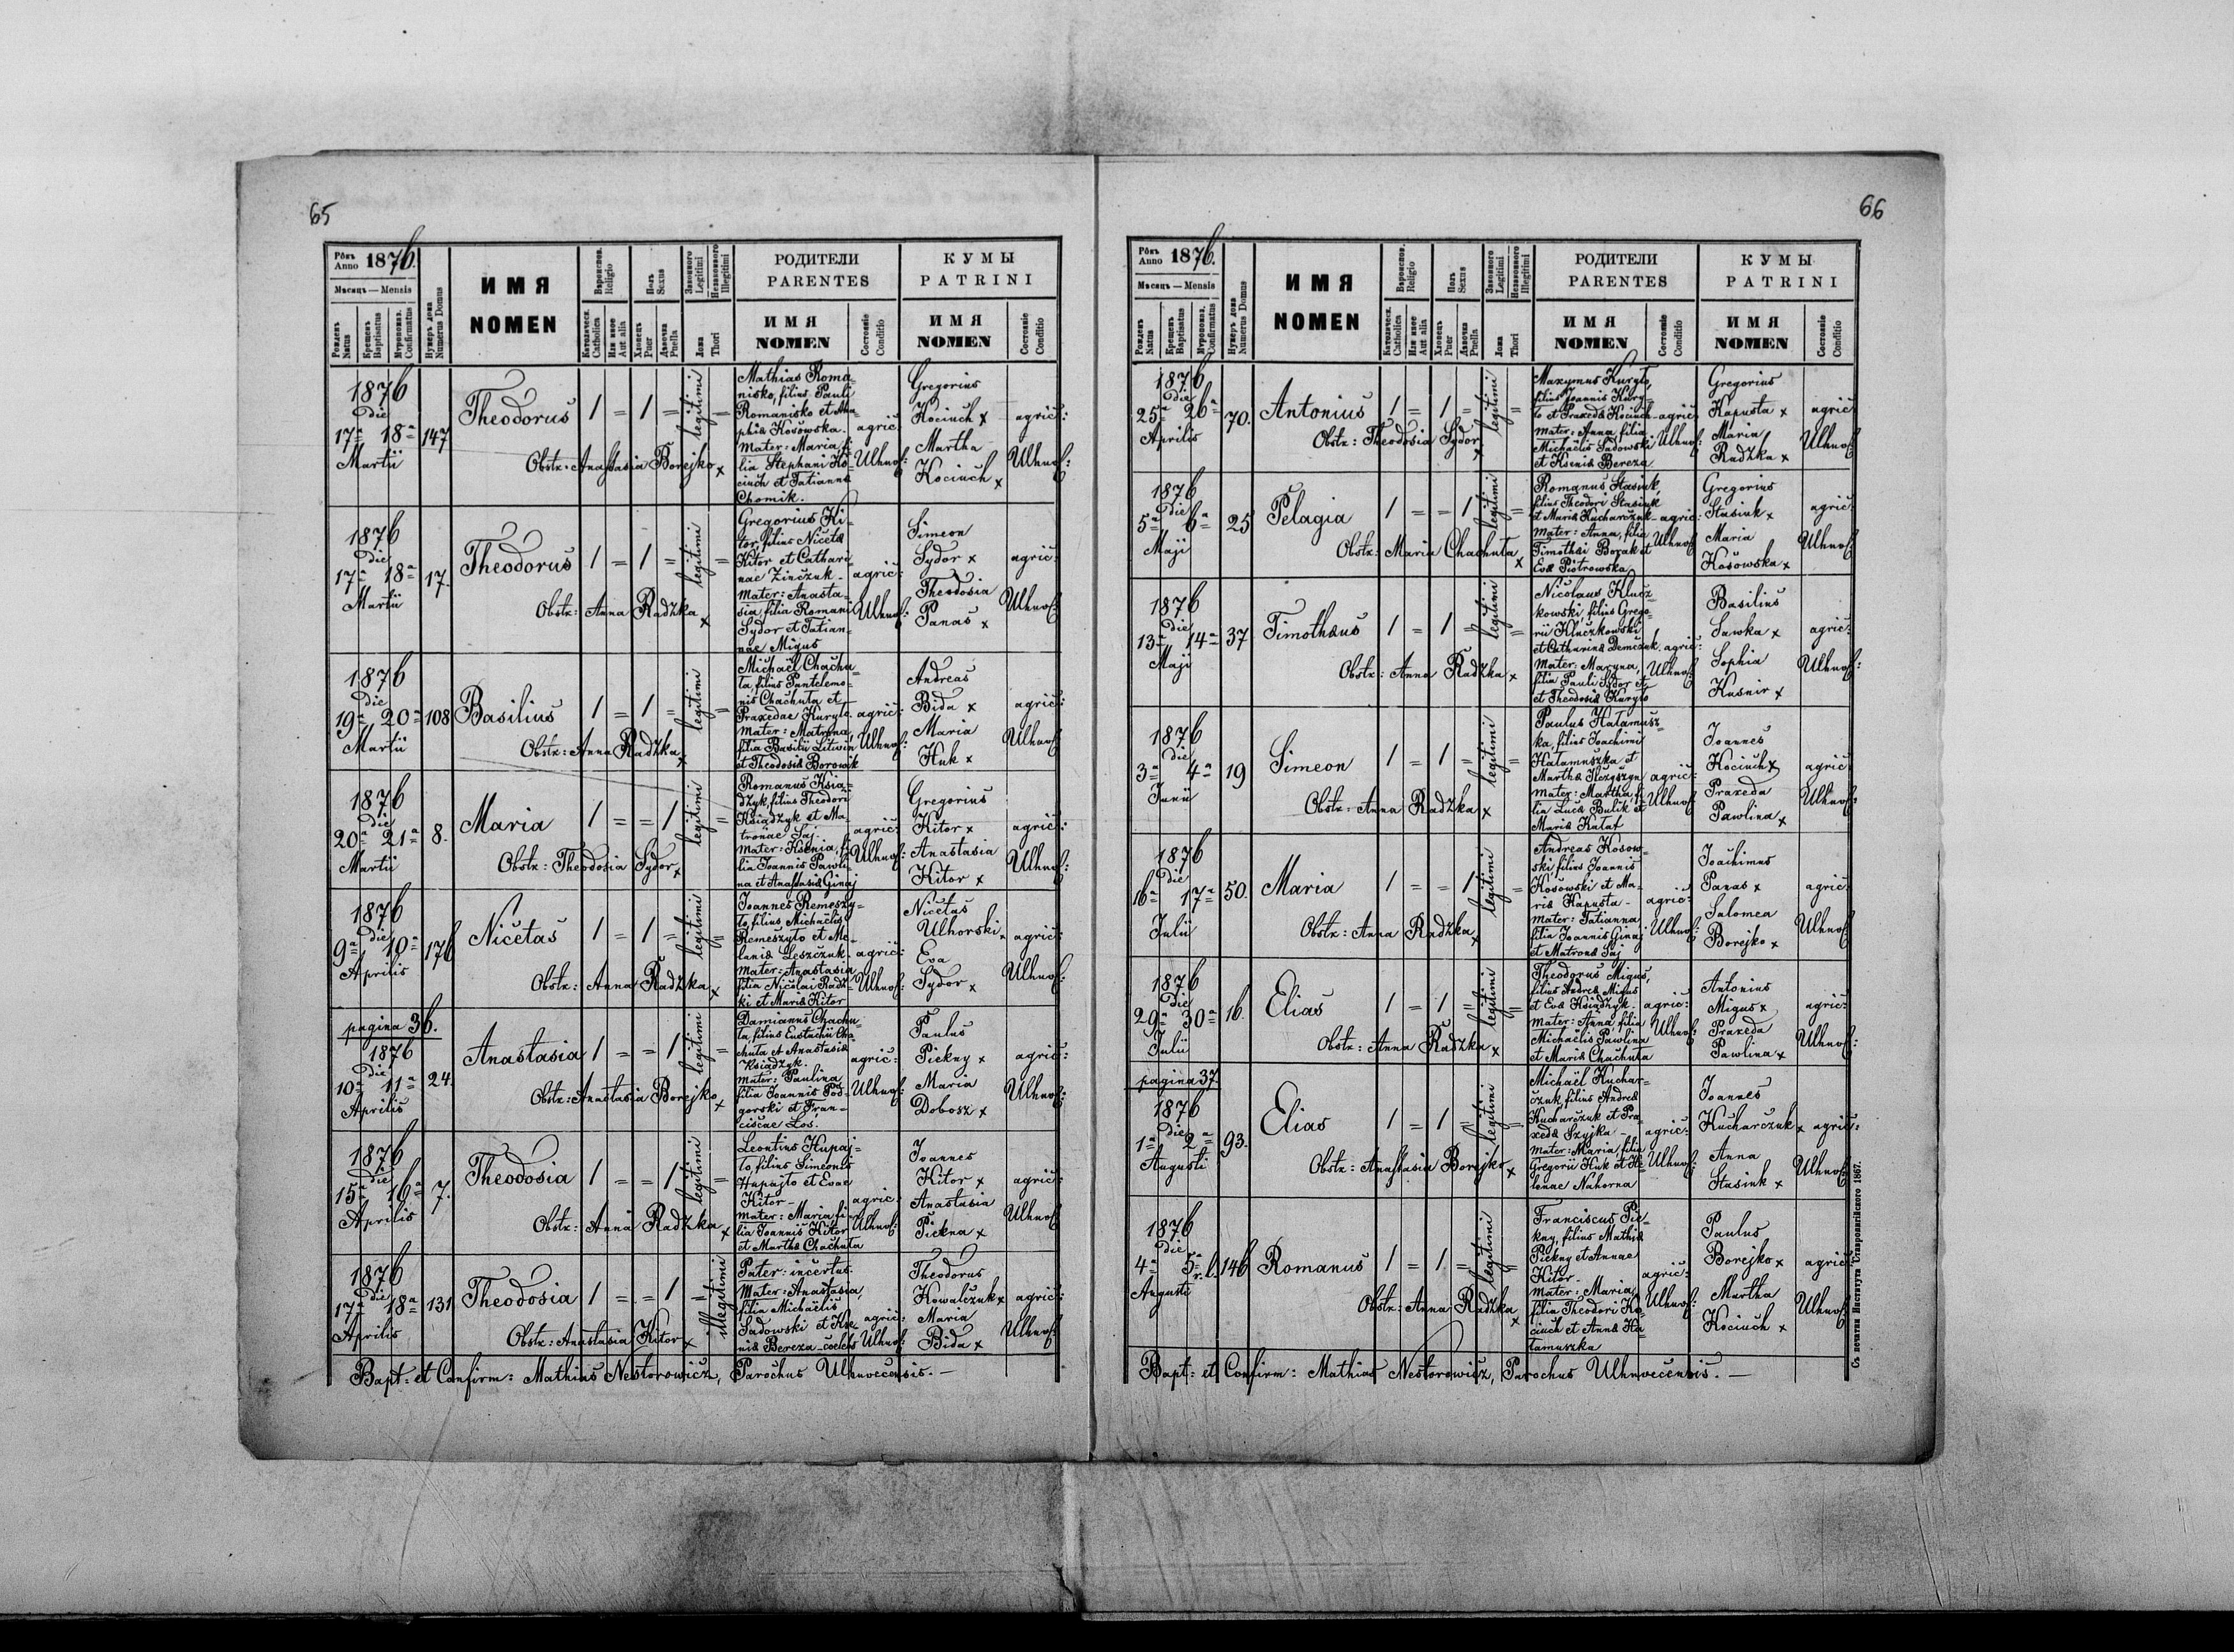 65
Рôкъ
Anno 1876.
Мѣсяць — Mensis
Рожденъ
Natus
Крещенъ
Baptisatus
Мѵропомаз.
Confirmatus
Нумеръ дома
Numerus Domus
ИМЯ
NOMEN
Вѣроиспов.
Religio
Католическ.
Catholica
Или иное
Aut alia
Полъ
Sexus
Хлопець
Puer
Дѣвочка
Puella
Законного
Legitimi
Незаконного
Illegitimi
Ложа
Thori
РОДИТЕЛИ
PARENTES
ИМЯ
NOMEN
Состояніе
Conditio
КУМЫ
PATRINI
ИМЯ
NOMEN
Состояніе
Conditio
1876
die
17ª 18ª 147
Martii
Theodorus 1 = 1 = legitimi =
Obstx: Anastasia Borejko x
Mathias Roma-
nisko, filius Pauli
Romanisko et Aha-
phiæ Kosowska.
Mater: Maria, fi-
lia Stephani Ko-
ciuch et Tatiannæ
Chomik.
agric:
Ulhnof:
Gregorius
Kociuch x
Martha
Kociuch x
agric:
Ulhnof:
1876
die
17ª 18ª 17.
Martii
Theodorus 1 = 1 = legitimi =
Obstx: Anna Radzka x
Gregorius Ki-
tor, filius Nicetæ
Kitor et Cathari-
nae Zinczuk -
Mater: Anasta-
sia, filia Romani
Sydor et Tatian-
nae Migus
agric:
Ulhnof:
Simeon
Sydor x
Theodosia
Panas x
agric:
Ulhnof:
1876
die
19ª 20ª 108
Martii
Basilius 1 = 1 = legitimi =
Obstx: Anna Radzka x
Michaël Chachu-
ta, filius Pantelemo-
nis Chachuta et
Praxedae Kuryło
Mater: Matrona,
filia Basilii Litwin
et Theodosiæ Borowik
agric:
Ulhnof:
Andreas
Bida x
Maria
Huk x
agric:
Ulhnof:
1876
die
20ª 21ª 8.
Martii
Maria 1 = = 1 legitimi =
Obstx: Theodosia Sydor x
Romanus Ksia-
dzyk, filius Theodori
Ksiądzyk et Ma-
tronae Saj.
Mater: Ksenia, fi-
lia Joannis Pawli-
na et Anastasiæ Ginaj
agric:
Ulhnof:
Gregorius
Kitor x
Anastasia
Kitor x
agric:
Ulhnof:
1876
die
9ª 10ª 176
Aprilis
Nicetas 1 = 1 = legitimi =
Obstx: Anna Radzka x
Joannes Remeszy-
ło, filius Michaëlis
Remeszyło et Me-
laniæ Leszczuk.
Mater: Anastasia
filia Nicolai Radz-
ki et Mariæ Kitor
agric:
Ulhnof:
Nicetas
Uhorski x
Eva
Sydor x
agric:
Ulhnof:
pagina 36.
1876
die
10ª 11ª 24.
Aprilis
Anastasia 1 = = 1 legitimi =
Obstx: Anastasia Borejko x
Damianus Chachu-
ta, filius Eustachii Cha-
chuta et Anastasiæ
Ksiądzyk.
Mater: Paulina,
filia Joannis Pod-
gorski et Fran-
ciscae Łos.
agric:
Ulhnof:
Paulus
Piekny x
Maria
Dobosz x
agric:
Ulhnof:
1876
die
15ª 16ª 7.
Aprilis
Theodosia 1 = = 1 legitimi =
Obstx: Anna Radzka x
Leontius Hupaj-
ło, filius Simeonis
Hupajło et Evae
Kitor -
Mater: Maria, fi-
lia Joannis Kitor
et Marthæ Chachuta
agric:
Ulhnof:
Joannes
Kitor x
Anastasia
Piekna x
agric:
Ulhnof:
1876
die
17ª 18ª 131
Aprilis
Theodosia 1 = = 1 = illegitimi
Obstx: Anastasia Kitor x
Pater: incertus.
Mater: Anastasia,
filia Michaëlis
Sadowski et Kse-
niæ Bereza - coelebs
agric:
Ulhnof:
Theodorus
Kowalczuk x
Maria
Bida x
agric:
Ulhnof:
Bapt: et Confirm: Mathias Nestorowicz, Parochus Ulhnvecensis. —
66
Рôкъ
Anno 1876.
Мѣсяць — Mensis
Рожденъ
Natus
Крещенъ
Baptisatus
Мѵропомаз.
Confirmatus
Нумеръ дома
Numerus Domus
ИМЯ
NOMEN
Вѣроиспов.
Religio
Католическ.
Catholica
Или иное
Aut alia
Полъ
Sexus
Хлопець
Puer
Дѣвочка
Puella
Законного
Legitimi
Незаконного
Illegitimi
Ложа
Thori
РОДИТЕЛИ
PARENTES
ИМЯ
NOMEN
Состояніе
Conditio
КУМЫ
PATRINI
ИМЯ
NOMEN
Состояніе
Conditio
1876
die
25ª 26ª 70.
Aprilis
Antonius 1 = 1 = legitimi =
Obstx: Theodosia Sydor x
Maxymus Kuryło,
filius Joannis Kury-
ło et Praxedæ Kociuch
Mater: Anna, filia
Michaëlis Sadowski
et Kseniæ Bereza
agric:
Ulhnof:
Gregorius
Kapusta x
Maria
Radzka x
agric
Ulhnof:
1876
die
5ª 6ª 25
Maji
Pelagia 1 = = 1 legitimi =
Obstx: Maria Chachuta x
Romanus Stasiuk,
filius Theodori Stasiuk
et Mariæ Kucharczuk
Mater: Anna, filia
Timothæi Bozak et
Evæ Piotrowska
agric:
Ulhnof:
Gregorius
Stasiuk x
Maria
Kosowska x
agric:
Ulhnof:
1876
die
13ª 14ª 37
Maji
Timothæus 1 = 1 = legitimi =
Obstx: Anna Radzka x
Nicolaus Klucz-
kowski, filius Grego-
rii Kluczkowski
et Catharinæ Demczuk.
Mater: Maryna,
filia Pauli Sydor et
et Theodosiæ Kuryło
agric:
Ulhnof:
Basilius
Sawka x
Sophia
Kusnir x
agric:
Ulhnof:
1876
die
3ª 4ª 19
Junii
Simeon 1 = 1 = legitimi =
Obstx: Anna Radzka x
Paulus Hałamusz-
ka, filius Joachimi
Hałamuszka et
Marthæ
Mater: Martha, fi-
lia Lucæ Bulik et
Mariæ Kałat
agric:
Ulhnof:
Joannes
Kociuch x
Praxeda
Pawlina x
agric:
Ulhnof:
1876
die
16ª 17ª 50.
Julii
Maria 1 = = 1 legitimi =
Obstx: Anna Radzka x
Andreas Kosow-
ski, filius Joannis
Kosowski et Ma-
riæ Kapusta -
Mater: Tatianna
filia Joannis Ginaj
et Matronæ Saj
agric:
Ulhnof:
Joachimus
Panas x
Salomea
Borejko x
agric:
Ulhnof:
1876
die
29ª 30ª 16.
Julii
Elias 1 = 1 = legitimi =
Obstx: Anna Radzka x
Theodorus Migus,
filius Andreæ Migus
et Evæ Ksiądzyk.
Mater: Anna, filia
Michaëlis Pawlina
et Mariæ Chachuta
agric:
Ulhnof:
Antonius
Migus x
Praxeda
Pawlina x
agric:
Ulhnof:
pagina 37.
1876
die
1ª 2ª 93.
Augusti
Elias 1 = 1 = legitimi =
Obstx: Anastasia Borejko x
Michaël Kuchar-
czuk, filius Andreæ
Kucharczuk et Pra-
xedæ Szyjka -
Mater: Maria, filia
Gregorii Huk et He-
lenae Nahorna
agric:
Ulhnof:
Joannes
Kucharczuk x
Anna
Stasiuk x
agric:
Ulhnof:
1876
die
4ª 5ª r.l. 146
Augusti
Romanus 1 = 1 = legitimi =
Obstx: Anna Radzka x
Franciscus Pie-
kny, filius Mathiæ
Piekny et Annae
Kitor -
Mater: Maria,
filia Theodori Ko-
ciuch et Annæ Ha-
łamuszka
agric:
Ulhnof:
Paulus
Borejko x
Martha
Kociuch x
agric:
Ulhnof:
Bapt: et Confirm: Mathias Nestorowicz, Parochus Ulhnvecensis. —
Съ печатни Института Ставропигійского 1867.